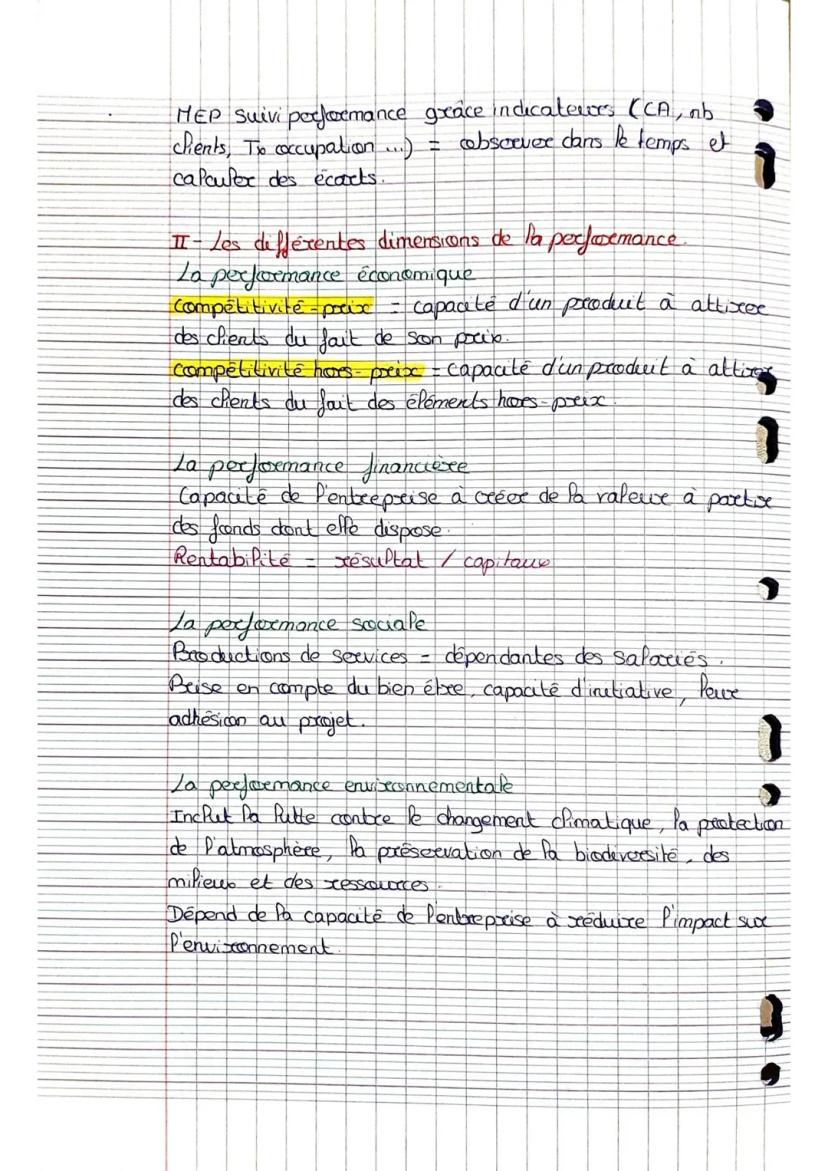 MEP suivi performance grâce indicateurs (CA, nb
clients, Tx occupation ...) = observer dans le temps et
calculer des écarts.
II - Les différentes dimensions de la performance.
La performance économique
compétitivité-prix = capacité d'un produit à attirer
des clients du fait de son prix.
compétitivité hors-prix = capacité d'un produit à attirer
des clients du fait des éléments hors-prix.
La performance financière
Capacité de l'entreprise à créer de la valeur à partir
des fonds dont elle dispose.
Rentabilité = résultat / capitaux
La performance sociale
Productions de services = dépendantes des salariés.
Prise en compte du bien être, capacité d'initiative, leur
adhésion au projet.
La performance environnementale
Inclut la lutte contre le changement climatique, la protection
de l'atmosphère, la préservation de la biodiversité, des
milieux et des ressources.
Dépend de la capacité de l'entreprise à réduire l'impact sur
l'environnement.